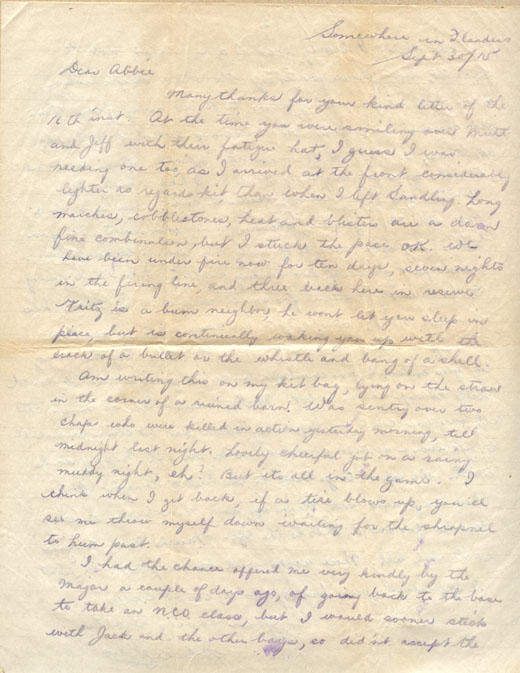 Somewhere in Flanders
Sept 30/15
Dear Abbie
Many thanks for your kind letter of the
16th inst. At the time you were smiling over Mutt
and Jeff with their fatigue hat, I guess I was
needing one too, as I arrived at the front considerably
lighter as regards kit than when I left Sandling. Long
marches, cobblestones, heat and blisters are a darn
fine combination, but I stuck the pace OK. We
have been under fire now for ten days, seven nights
in the firing line, and three back here in reserve.
Fritz is a bum neighbor, he wont let you sleep in
peace, but is continually waking you up with the
crack of a bullet or the whistle and bang of a shell.
Am writing this on my kit bag, lying on the straw
in the corner of a ruined barn. Was sentry over two
chaps who were killed in action yesterday morning, till
midnight last night. Lovely cheerful job on a rainy
muddy night, eh? But its all in the game. I
think when I get back, if a tire blows up, you'll
see me throw myself down waiting for the shrapnel
to hum past.
I had the chance offered me very kindly by the
Major a couple of days ago, of going back to the base
to take an NCO class, but I would sooner stick
with Jack and the other boys, so didn't accept the